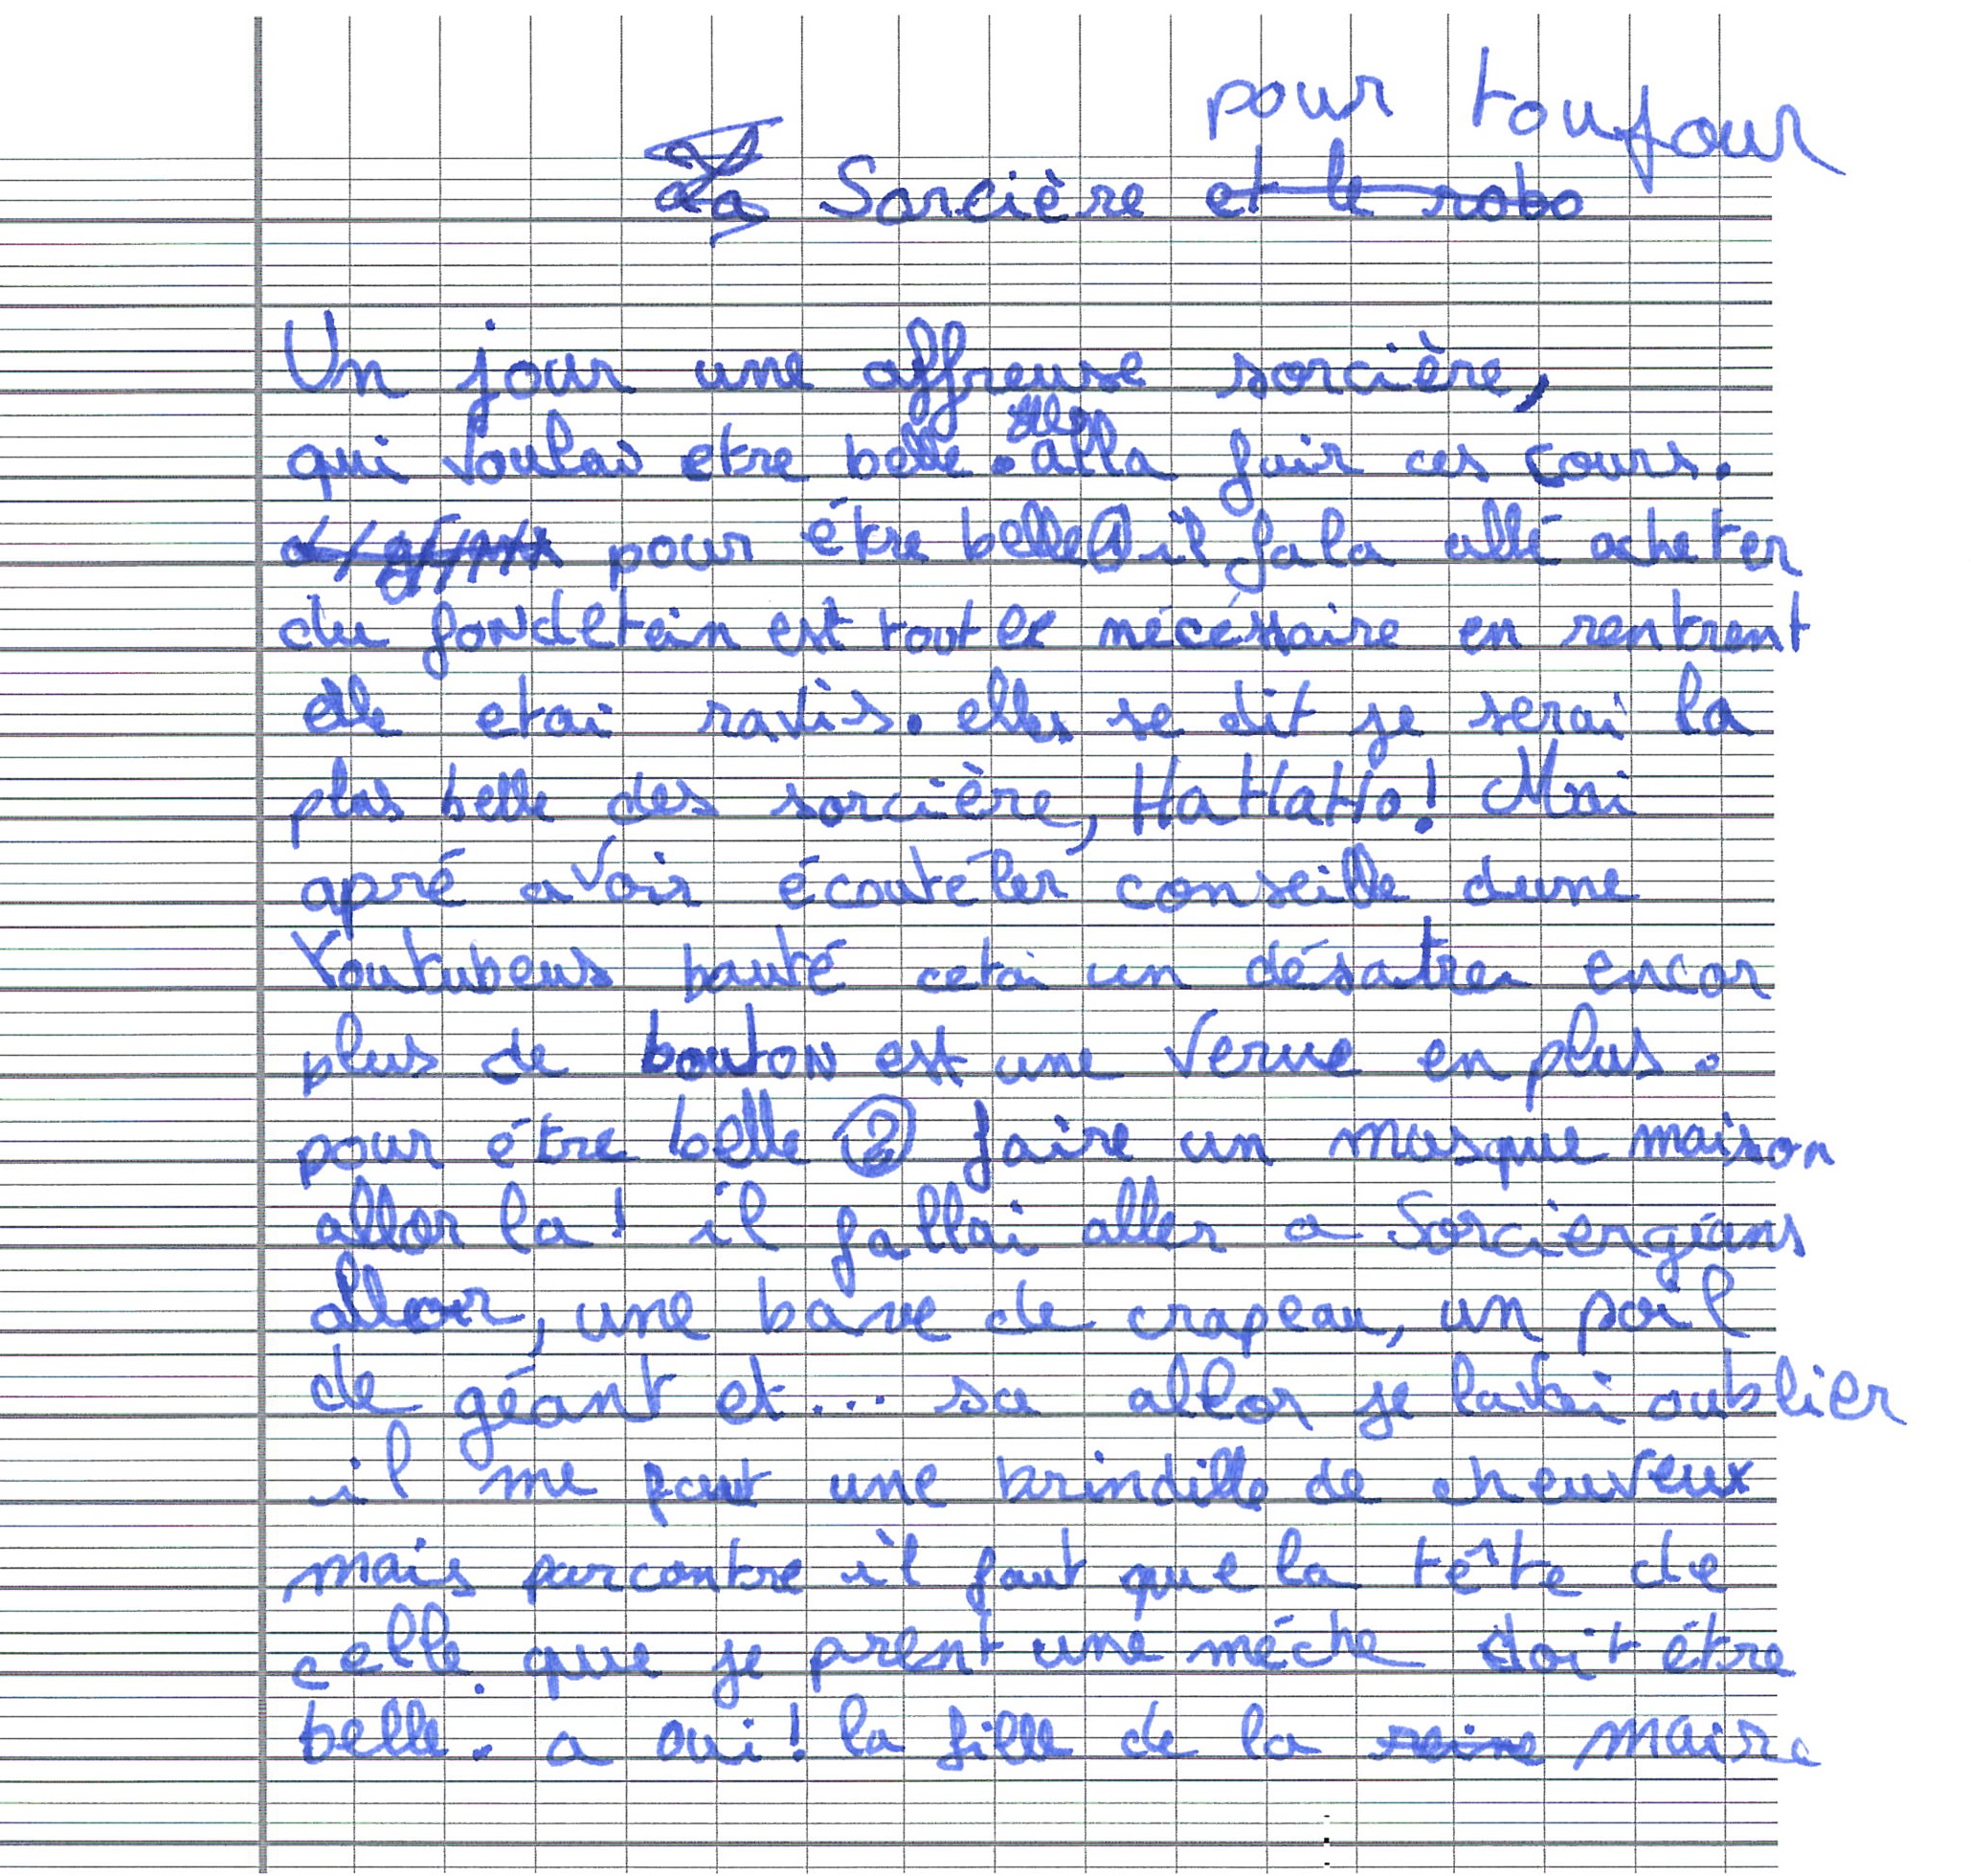 pour toujour
La Sorcière et le robo
Un jour une affreuse sorcière,
qui voulais etre belle. alla fair ces cours.
pour être belle 1 il fala allé acheter
du fondetein est tout le nécéssaire en rentrent
elle etai ravis. elle se dit je serai la
plus belle des sorcière, HaHaHa! Mai
apré avoir écouté les conseille dune
Youtubeus bauté cetai un désatre encor
plus de bouton est une verue en plus.
pour étre belle 2 faire un masque maison
allor la! il fallai aller a Sorciergéans
allor, une bave de crapeau, un poil
de géant et... sa allor je lavai oublier
il me faut une brindille de cheuveux
mais parcontre il faut que la tête de
celle que je prent une méche doit étre
belle. a oui! la fille de la reine maire